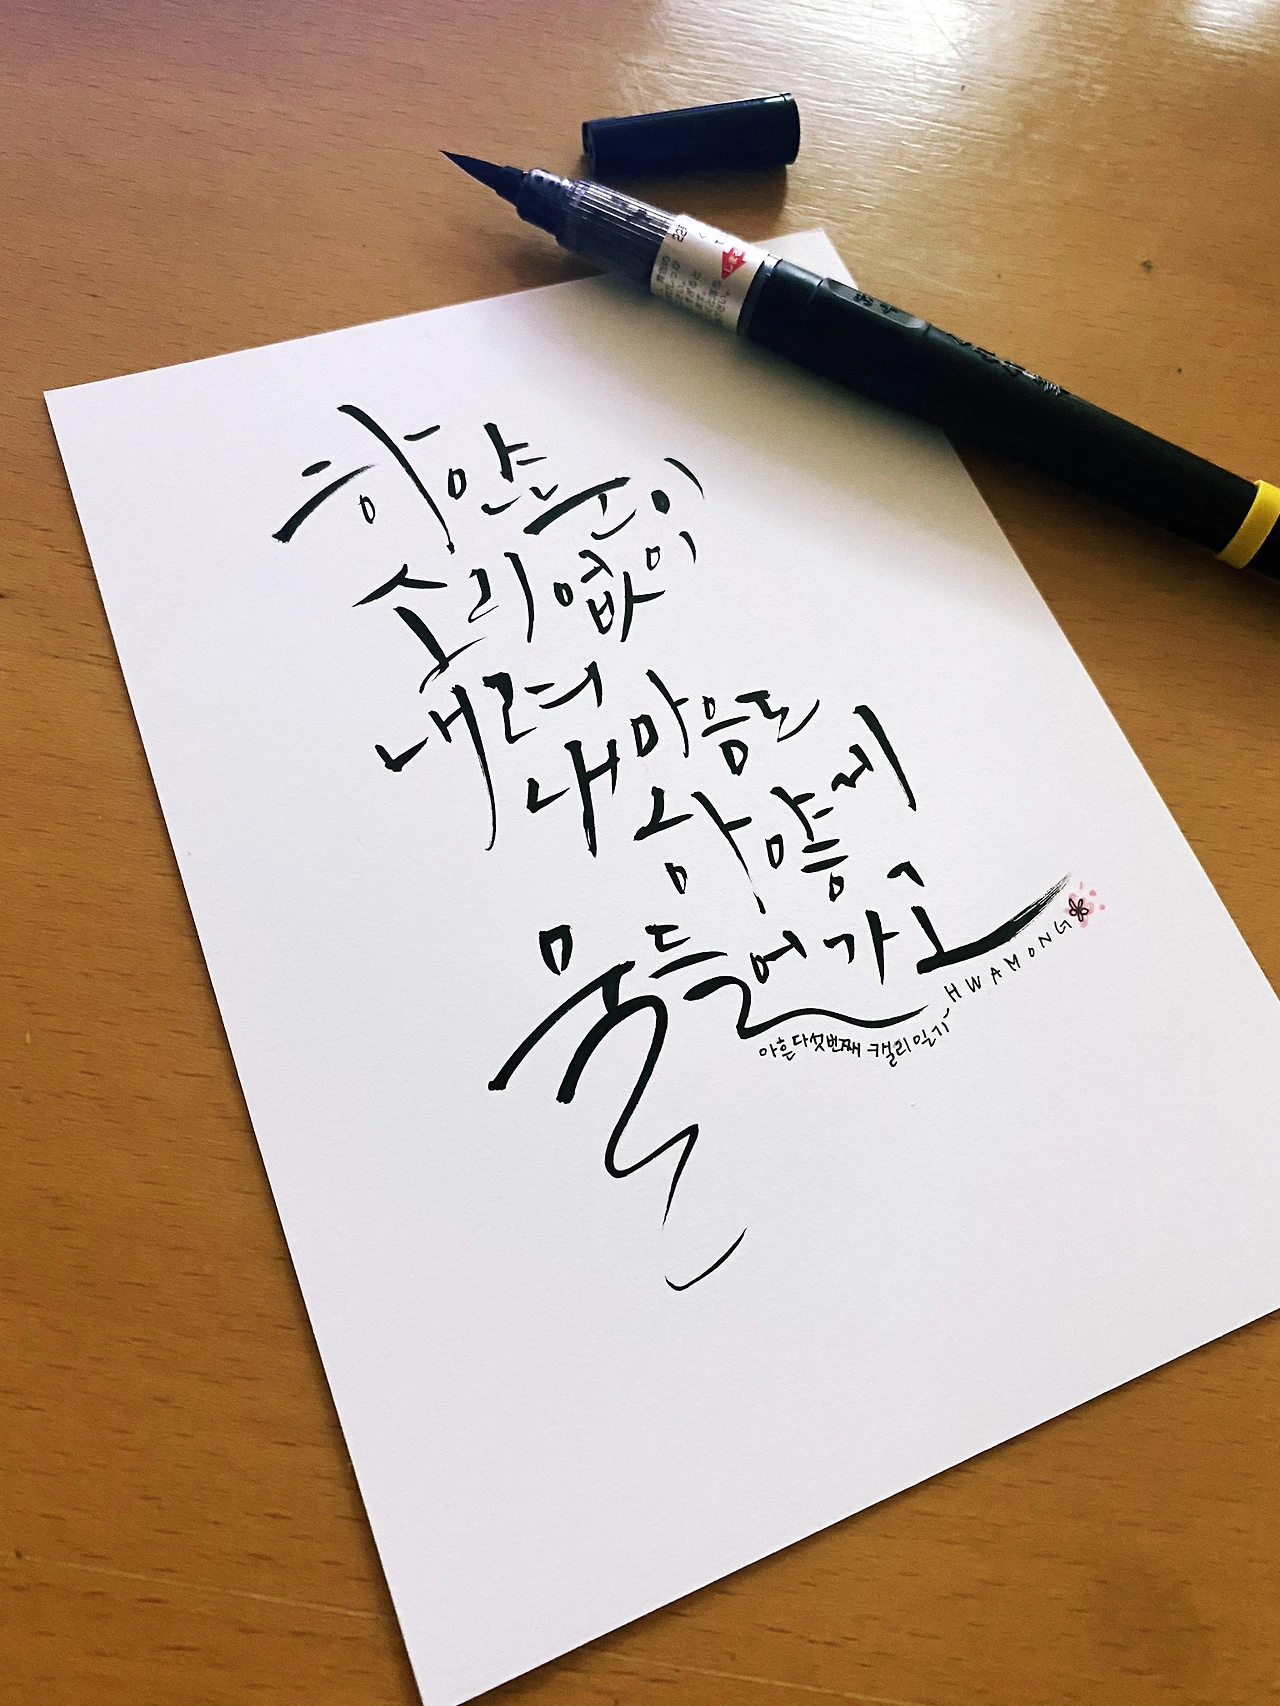 하얀눈이
소리없이
내려
내마음도
하얗게
물들어가고
아흔다섯번째 캘리일기~
HWAMONG